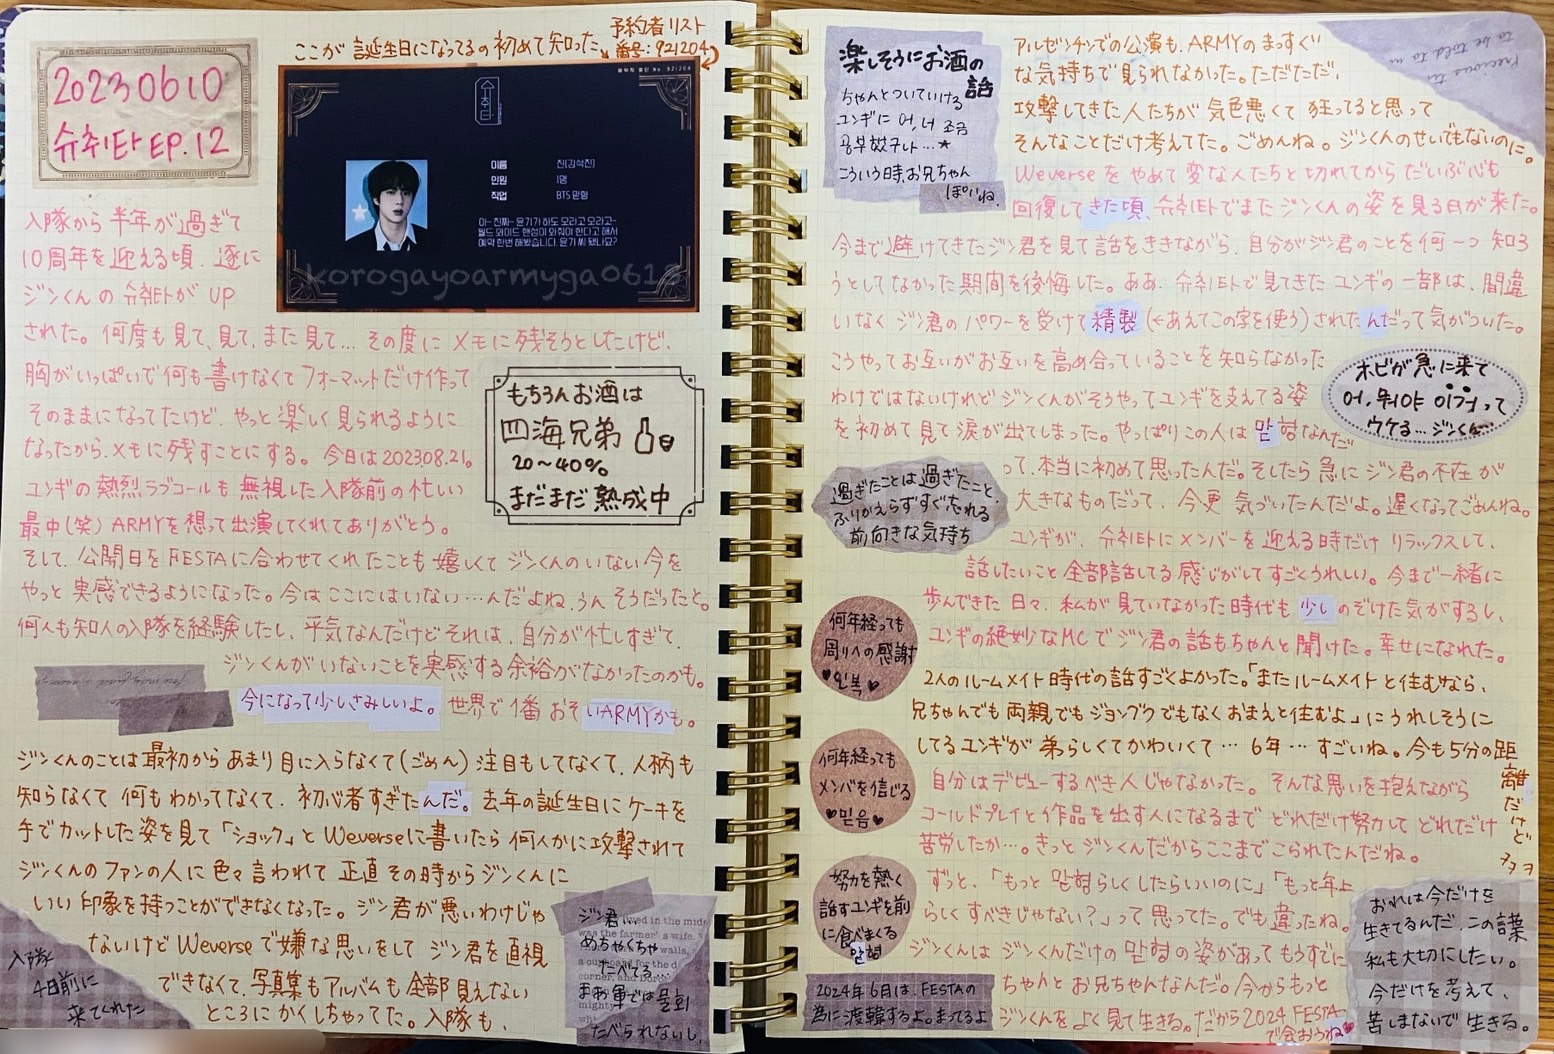 20230610
슈취타 EP.12
ここが誕生日になってるの初めて知った
予約者リスト
番号:921204
슈취타
예약자 명단 No. 921204
이름 진(김석진)
인원 1명
직업 BTS 맏형
아- 진짜- 윤기가 하도 오라고 오라고-
월드 와이드 핸섬이 와줘야 한다고 해서
예약 한번 해봤습니다. 윤기 씨 됐나요?
korogayoarmyga061
入隊から半年が過ぎて
10周年を迎える頃、遂に
ジンくんの슈취타が UP
された。何度も見て、見て、また見て… その度にメモに残そうとしたけど、
胸がいっぱいで何も書けなくてフォーマットだけ作って
そのままになってたけど、やっと楽しく見られるように
なったからメモに残すことにする。今日は2023.08.21。
ユンギの熱烈ラブコールも無視した入隊前の忙しい
最中(笑) ARMYを想って出演してくれてありがとう。
そして、公開日をFESTAに合わせてくれたことも嬉しくてジンくんのいない今を
やっと実感できるようになった。今はここにはいない…んだよね、うんそうだったと。
何人も知人の入隊を経験したし、平気なんだけどそれは、自分が忙しすぎて、
ジンくんがいないことを実感する余裕がなかったのかも。
今になって少しさみしいよ。世界で1番おそいARMYかも。
もちろんお酒は
四海兄弟
20〜40%
まだまだ熟成中
ジンくんのことは最初からあまり目に入らなくて(ごめん)注目もしてなくて、人柄も
知らなくて何もわかってなくて、初心者すぎたんだ。去年の誕生日にケーキを
手でカットした姿を見て「ショック」とWeverseに書いたら何人かに攻撃されて
ジンくんのファンの人に色々言われて正直その時からジンくんに
いい印象を持つことができなくなった。ジン君が悪いわけじゃ
ないけどWeverseで嫌な思いをしてジン君を直視
できなくて、写真集もアルバムも全部見えない
ところにかくしちゃってた。入隊も、
入隊
4日前に
来てくれた
ジン君
めちゃくちゃ
たべてる…
まあ軍では
たべられないし
楽しそうにお酒の
話
ちゃんとついていける
ユンギに 어, 너 조금
공부 했구나…★
こういう時、お兄ちゃん
ぽいね。
アルゼンチンでの公演も、ARMYのまっすぐ
な気持ちで見られなかった。ただただ、
攻撃してきた人たちが気色悪くて狂ってると思って
そんなことだけ考えてた。ごめんね。ジンくんのせいでもないのに。
Weverseをやめて変な人たちと切れてからだいぶ心も
回復してきた頃、슈취타でまたジンくんの姿を見る日が来た。
今まで避けてきたジン君を見て話をききながら、自分がジン君のことを何一つ知ろ
うとしてなかった期間を後悔した。ああ、슈취타で見てきたユンギの一部は、間違
いなくジン君のパワーを受けて精製(←あえてこの字を使う)されたんだって気がついた。
こうやってお互いがお互いを高め合っていることを知らなかった
わけではないけれどジンくんがそうやってユンギを支えてる姿
を初めて見て涙が出てしまった。やっぱりこの人は맏형なんだ
って、本当に初めて思ったんだ。そしたら急にジン君の不在が
大きなものだって、今更気づいたんだよ。遅くなってごめんね。
ユンギが、슈취타にメンバーを迎える時だけリラックスして、
話したいこと全部話してる感じがしてすごくうれしい。今まで一緒に
歩んできた日々、私が見ていなかった時代も少しのぞけた気がするし、
ユンギの絶妙なMCでジン君の話もちゃんと聞けた。幸せになれた。
ホビが急に来て
어, 뭐야 이거って
ウケる…ジンくん…
過ぎたことは過ぎたこと、
ふりかえらずすぐ忘れる
前向きな気持ち
何年経っても
周りへの感謝
♥인복♥
何年経っても
メンバを信じる
♥믿음♥
努力を熱く
話すユンギを前
に食べまくる
맏형
2人のルームメイト時代の話すごくよかった。「またルームメイトと住むなら、
兄ちゃんでも両親でもジョングクでもなくおまえと住むよ」にうれしそうに
してるユンギが弟らしくてかわいくて… 6年… すごいね。今も5分の距
離だけどヲヲ
自分はデビューするべき人じゃなかった。そんな思いを抱えながら
コールドプレイと作品を出す人になるまでどれだけ努力してどれだけ
苦労したか…。きっとジンくんだからここまでこられたんだね。
ずっと、「もっと맏형らしくしたらいいのに」「もっと年上
らしくすべきじゃない?」って思ってた。でも違ったね。
ジンくんはジンくんだけの맏형の姿があってもうすでに
ちゃんとお兄ちゃんなんだ。今からもっと
ジンくんをよく見て生きる。だから2024 FESTA
で会おうね♥
2024年6月は、FESTAの
為に渡韓するよ。まってるよ
おれは今だけを
生きてるんだ。この言葉
私も大切にしたい。
今だけを考えて、
苦しまないで生きる。